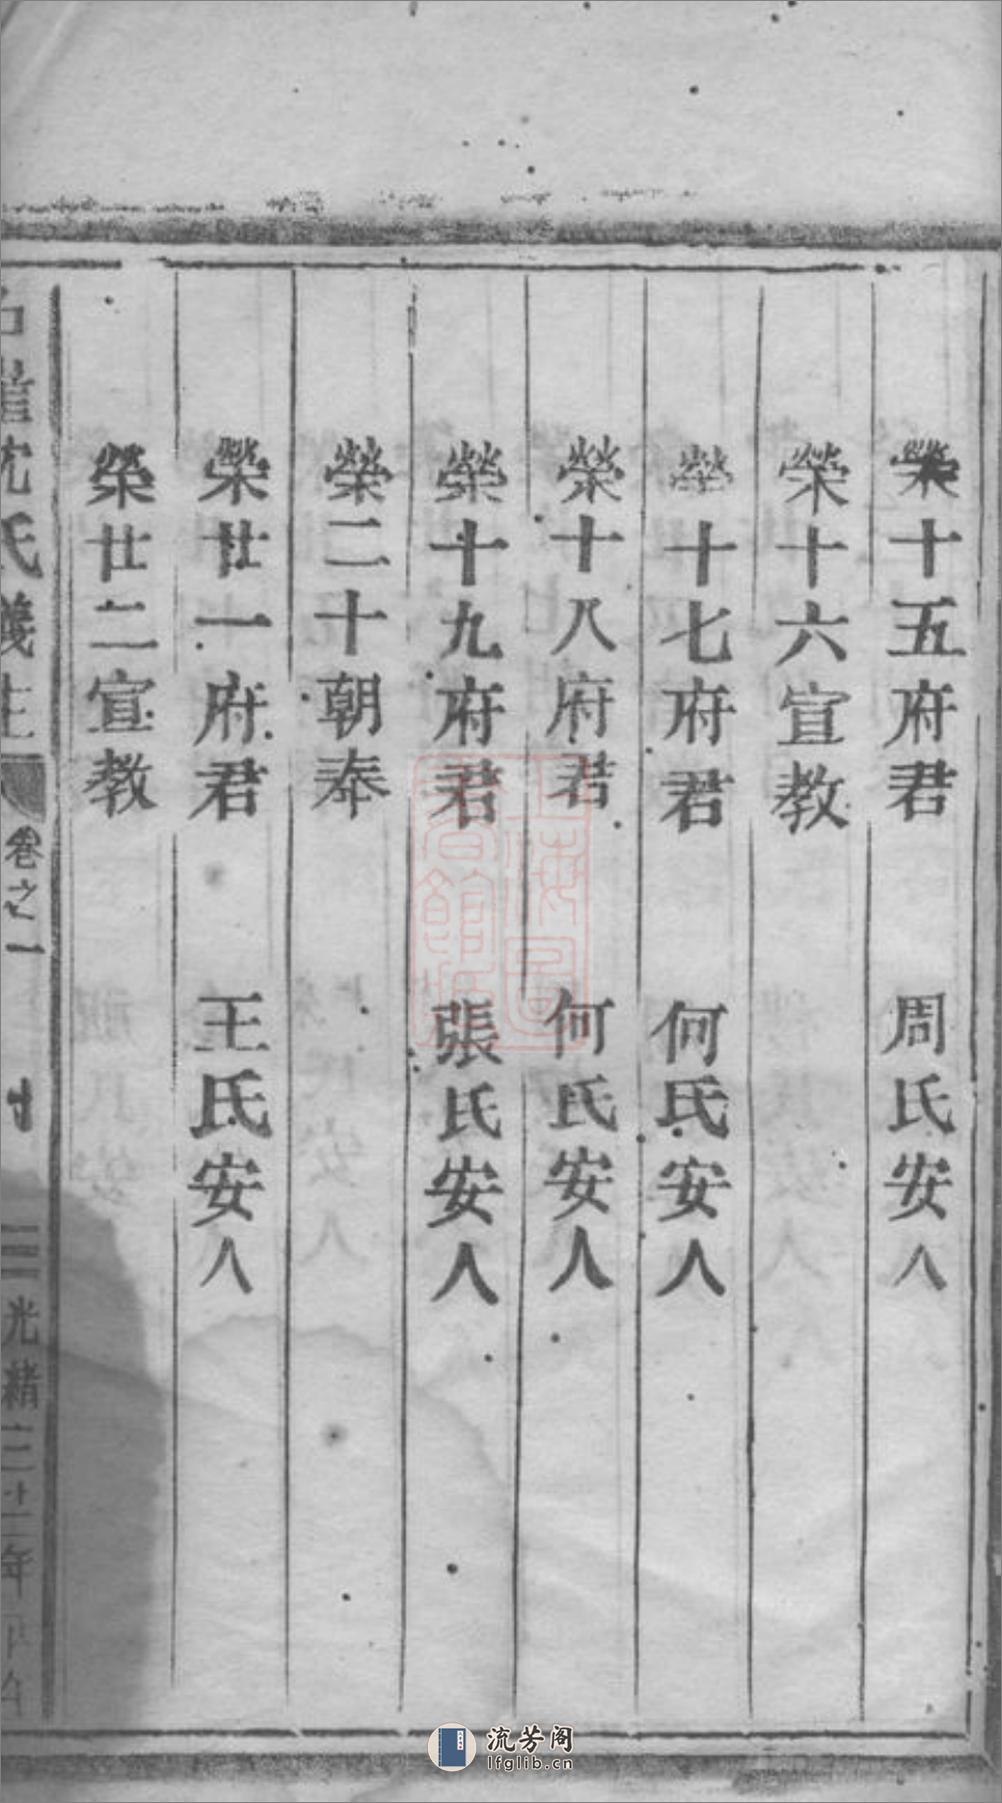 榮十五府君　周氏安人
榮十六宣教
榮十七府君　何氏安人
榮十八府君　何氏安人
榮十九府君　張氏安人
榮二十朝奉
榮廿一府君　王氏安人
榮廿二宣教
沈氏義庄　卷之一　光緒三十二年
上海圖書館藏
流芳阁
lfglib.cn